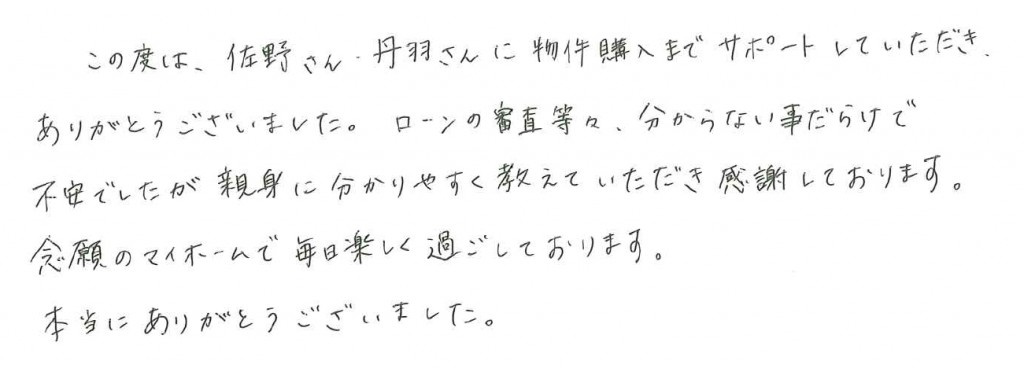 この度は、佐野さん・丹羽さんに物件購入までサポートしていただき、
ありがとうございました。ローンの審査等々、分からない事だらけで
不安でしたが親身に分かりやすく教えていただき感謝しております。
念願のマイホームで毎日楽しく過ごしております。
本当にありがとうございました。